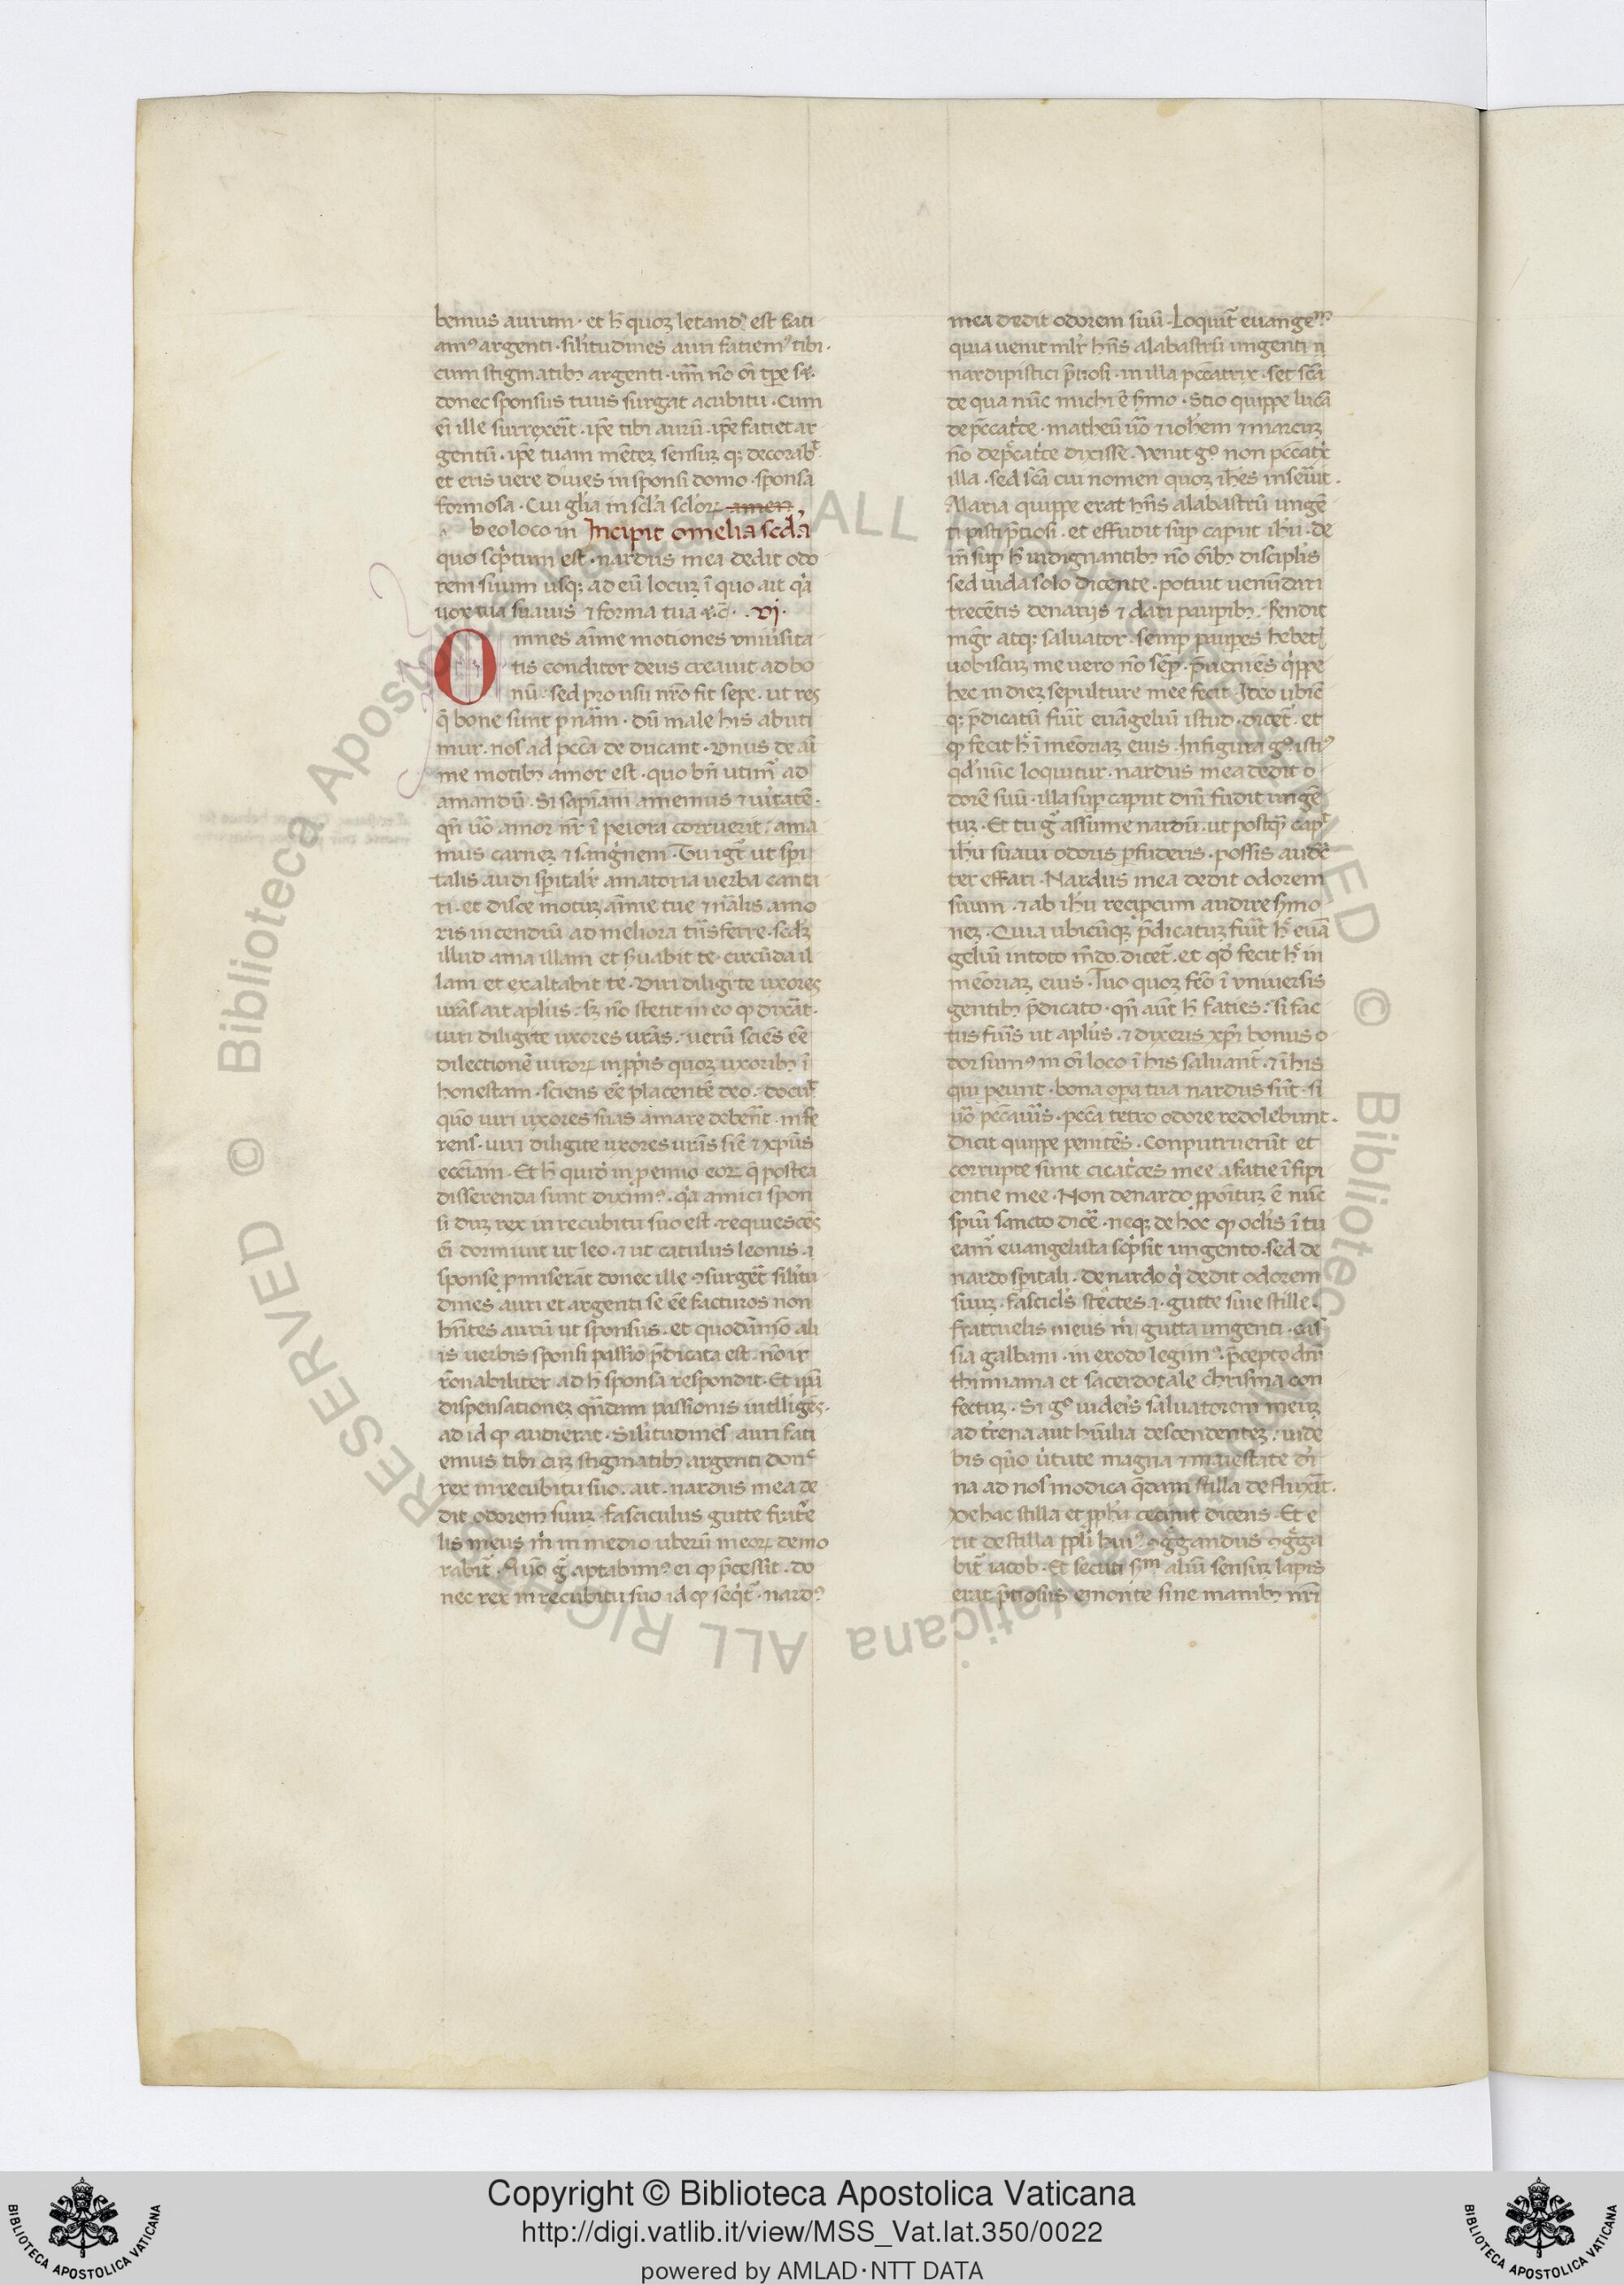 bemus aurum · et h̄ quoꝫ letand᷒ est fati
am᷒ argenti · silitudines auri fatiem᷒ tibi ·
cum stigmatibꝫ argenti · nō oī tpe
donec sponsus tuus surgat acubitu · Cum
eī ille surrexeīt · ipē tibi aurū · ipē fatiet ar
gentū · ipē tuam mētez sensuꝫ qꝫ decorab᷑
et eris uere diues in sponsi domo · sponsa
formosa · Cui gl̄ia in scl̄a scl̄oꝝ amen
b eo loco in Incipit omelia scd̄a
quo scp̄tum est · nardus mea dedit odo
rem suum usqꝫ ad eū locuꝫ ī quo ait qa
uox tua suauis ⁊ forma tua · vj ·
Omnes aīme motiones vniūsita
tis conditor deus creauit ad bo
nū · sed pro usu nr̄o fit sepe · ut res
q̄ bone sunt p nāam · dū male his abuti
mur · nos ad pccā de ducant · vnus de aī
me motibꝫ amor est · quo bn̄ utim᷑ ad
amandū · Si sapīam amemus ⁊ uītatē ·
qn̄ uō amor nr̄ ī peiora corruerit · ama
mus carneꝫ ⁊ sangnem · Tu igt᷑ ut spi
talis audi spitalr̄ amatoria uerba canta
ri · et disce motuꝫ aīme tue ⁊ nālis amo
ris incendiū ad meliora tn̄sferre · scdꝫ
illud ama illam et suabit te · circūda il
lam et exaltabit te · Viri diligite uxores
urās ait apl̄us · sꝫ nō stetit in eo qꝫ dixāt ·
uiri diligite uxores urās · uerū sciēs eē
dilectionē uiroꝝ in ppis quoꝫ uxoribꝫ ī
honestam · sciens eē placentē deo · docu᷑
quō uiri uxores suas amare debent · infe
rens · uiri diligite uxores urās sic̄ ⁊ xpūs
eccīam · Et h̄ quidē in pemio eoꝝ q̄ postea
disserenda sunt dixim᷒ · qa amici spon
si duꝫ rex in recubitu suo est · requiescēs
eī dormiuit ut leo · ⁊ ut catulus leonis · ⁊
sponse pmiserāt donec ille surget silitu
dines auri et argenti se eē facturos non
hn̄tes aurū ut sponsus · et quodāmō ali
is uerbis sponsi passio pdicata est · nō ir
rōnabiliter ad h̄ sponsa respondit · Et ipū
dispensationeꝫ qn̄dam passionis intlligēs ·
ad id qꝫ audierat · Silitudines auri fati
emus tibi cuꝫ stigmatibꝫ argenti donc
rex in recubitu suo · ait · nardus mea de
dit odorem suuꝫ · fasciculus gutte fratue
lis meus m̄ in medio uberū meoꝝ demo
rabit᷑ · Quō g aptabim᷒ ei qꝫ pcessit · do
nec rex in recubitu suo id qꝫ seqt᷑ · nard᷒
mea dedit odorem suū · Loquit᷑ euange
quia uenit mlr̄ hn̄s alabastrū ungenti
nardi pistici ptiosi · n illa pccatrix · set scā
de qua nūc michi ē smo · Scio quippe lucā
de pccatce · matheū uō ⁊ ioh̄em ⁊ marcuꝫ
nō de pccatce dixisse · Venit g᷒ non pccatx
illa · sed scā cui nomen quoꝫ ioh̄es inseūit ·
Maria quippe erat hn̄s alabastrū ungē
ti pisti ptiosi · et effudit sup caput ih̄u · de
in sup h̄ indignantibꝫ nō oībꝫ discipl̄is
sed iuda solo dicente · potuit uenūdari
trecētis denariis ⁊ dari paupibꝫ · Rendit
mgr̄ atqꝫ saluator · semp paupes hebet᷑
uobiscuꝫ me uero nō sēp · pueniēs qppe
hec in dieꝫ sepulture mee fecit · Ideo ubiē
qꝫ pdicatū fuit euāgeliū istud · dicet᷑ · et
qꝫ fecit h̄ ī mēoriaꝫ eius · In figura g᷒ isti᷒
qd̄ nūc loquitur · nardus mea dedit o
dorē suū · illa sup caput dn̄i fudit ungē
tuꝫ · Et tu g assume nardū · ut postqꝫ cap᷑
ih̄u suaui odoris pfuderis · possis audē
ter effari · Nardus mea dedit odorem
suum · ⁊ ab ih̄u recipcum audire smo
neꝫ · Quia ubicūqꝫ pdicatuꝫ fuit h̄ euā
geliū in toto mdo · dicet᷑ · et qd̄ fecit h̄ in
mēoriaꝫ eius · Tuo quoꝫ fcō ī vniuersis
gentibꝫ pdicato · qn̄ aut̄ h̄ faties · si fac
tus fuīs ut apl̄us · ⁊ dixeris xpi bonus o
dor sum᷒ in oī loco ī his saluant᷑ · ⁊ ī his
qui peunt · bona opa tua nardus sūt · si
uō peccaūis · pccā tetro odore redolebunt ·
Dicit quippe penitēs · Conputruerūt et
corrupte sunt cicatces mee a fatie īsipi
entie mee · Non de nardo pponituꝫ ē nūc
spiū sancto dicē · neqꝫ de hoc qꝫ oclis ītu
eam᷑ euangelista scpsit ungento · sed de
nardo spitali · de nardo q dedit odorem
suuꝫ · fascicls stēctes · ⁊ · gutte siue stille ·
fratruelis meus m̄ gutta ungenti · cas
sia galbani · in exodo legim᷒ · pcepto dn̄i
thimiama et sacerdotale chrisma con
fectuꝫ · Si g᷒ uideis saluatorem meuꝫ
ad trena aut hūilia descendenteꝫ · uide
bis quō uītute magna ⁊ maiestate di
na ad nos modica qdam stilla de fluxit ·
De hac stilla et ppha cecinit dicens · Et e
rit de stilla ppli hui᷒ gandus gga
bit᷑ iacob · Et secūti sm aliū sensuꝫ lapis
erat ptiosus e monte sine manibꝫ nr̄i
Copyright © Biblioteca Apostolica Vaticana
http://digi.vatlib.it/view/MSS_Vat.lat.350/0022
powered by AMLAD·NTT DATA